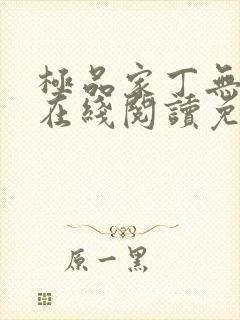 極品家丁無
在綫閱讀免
原一黑